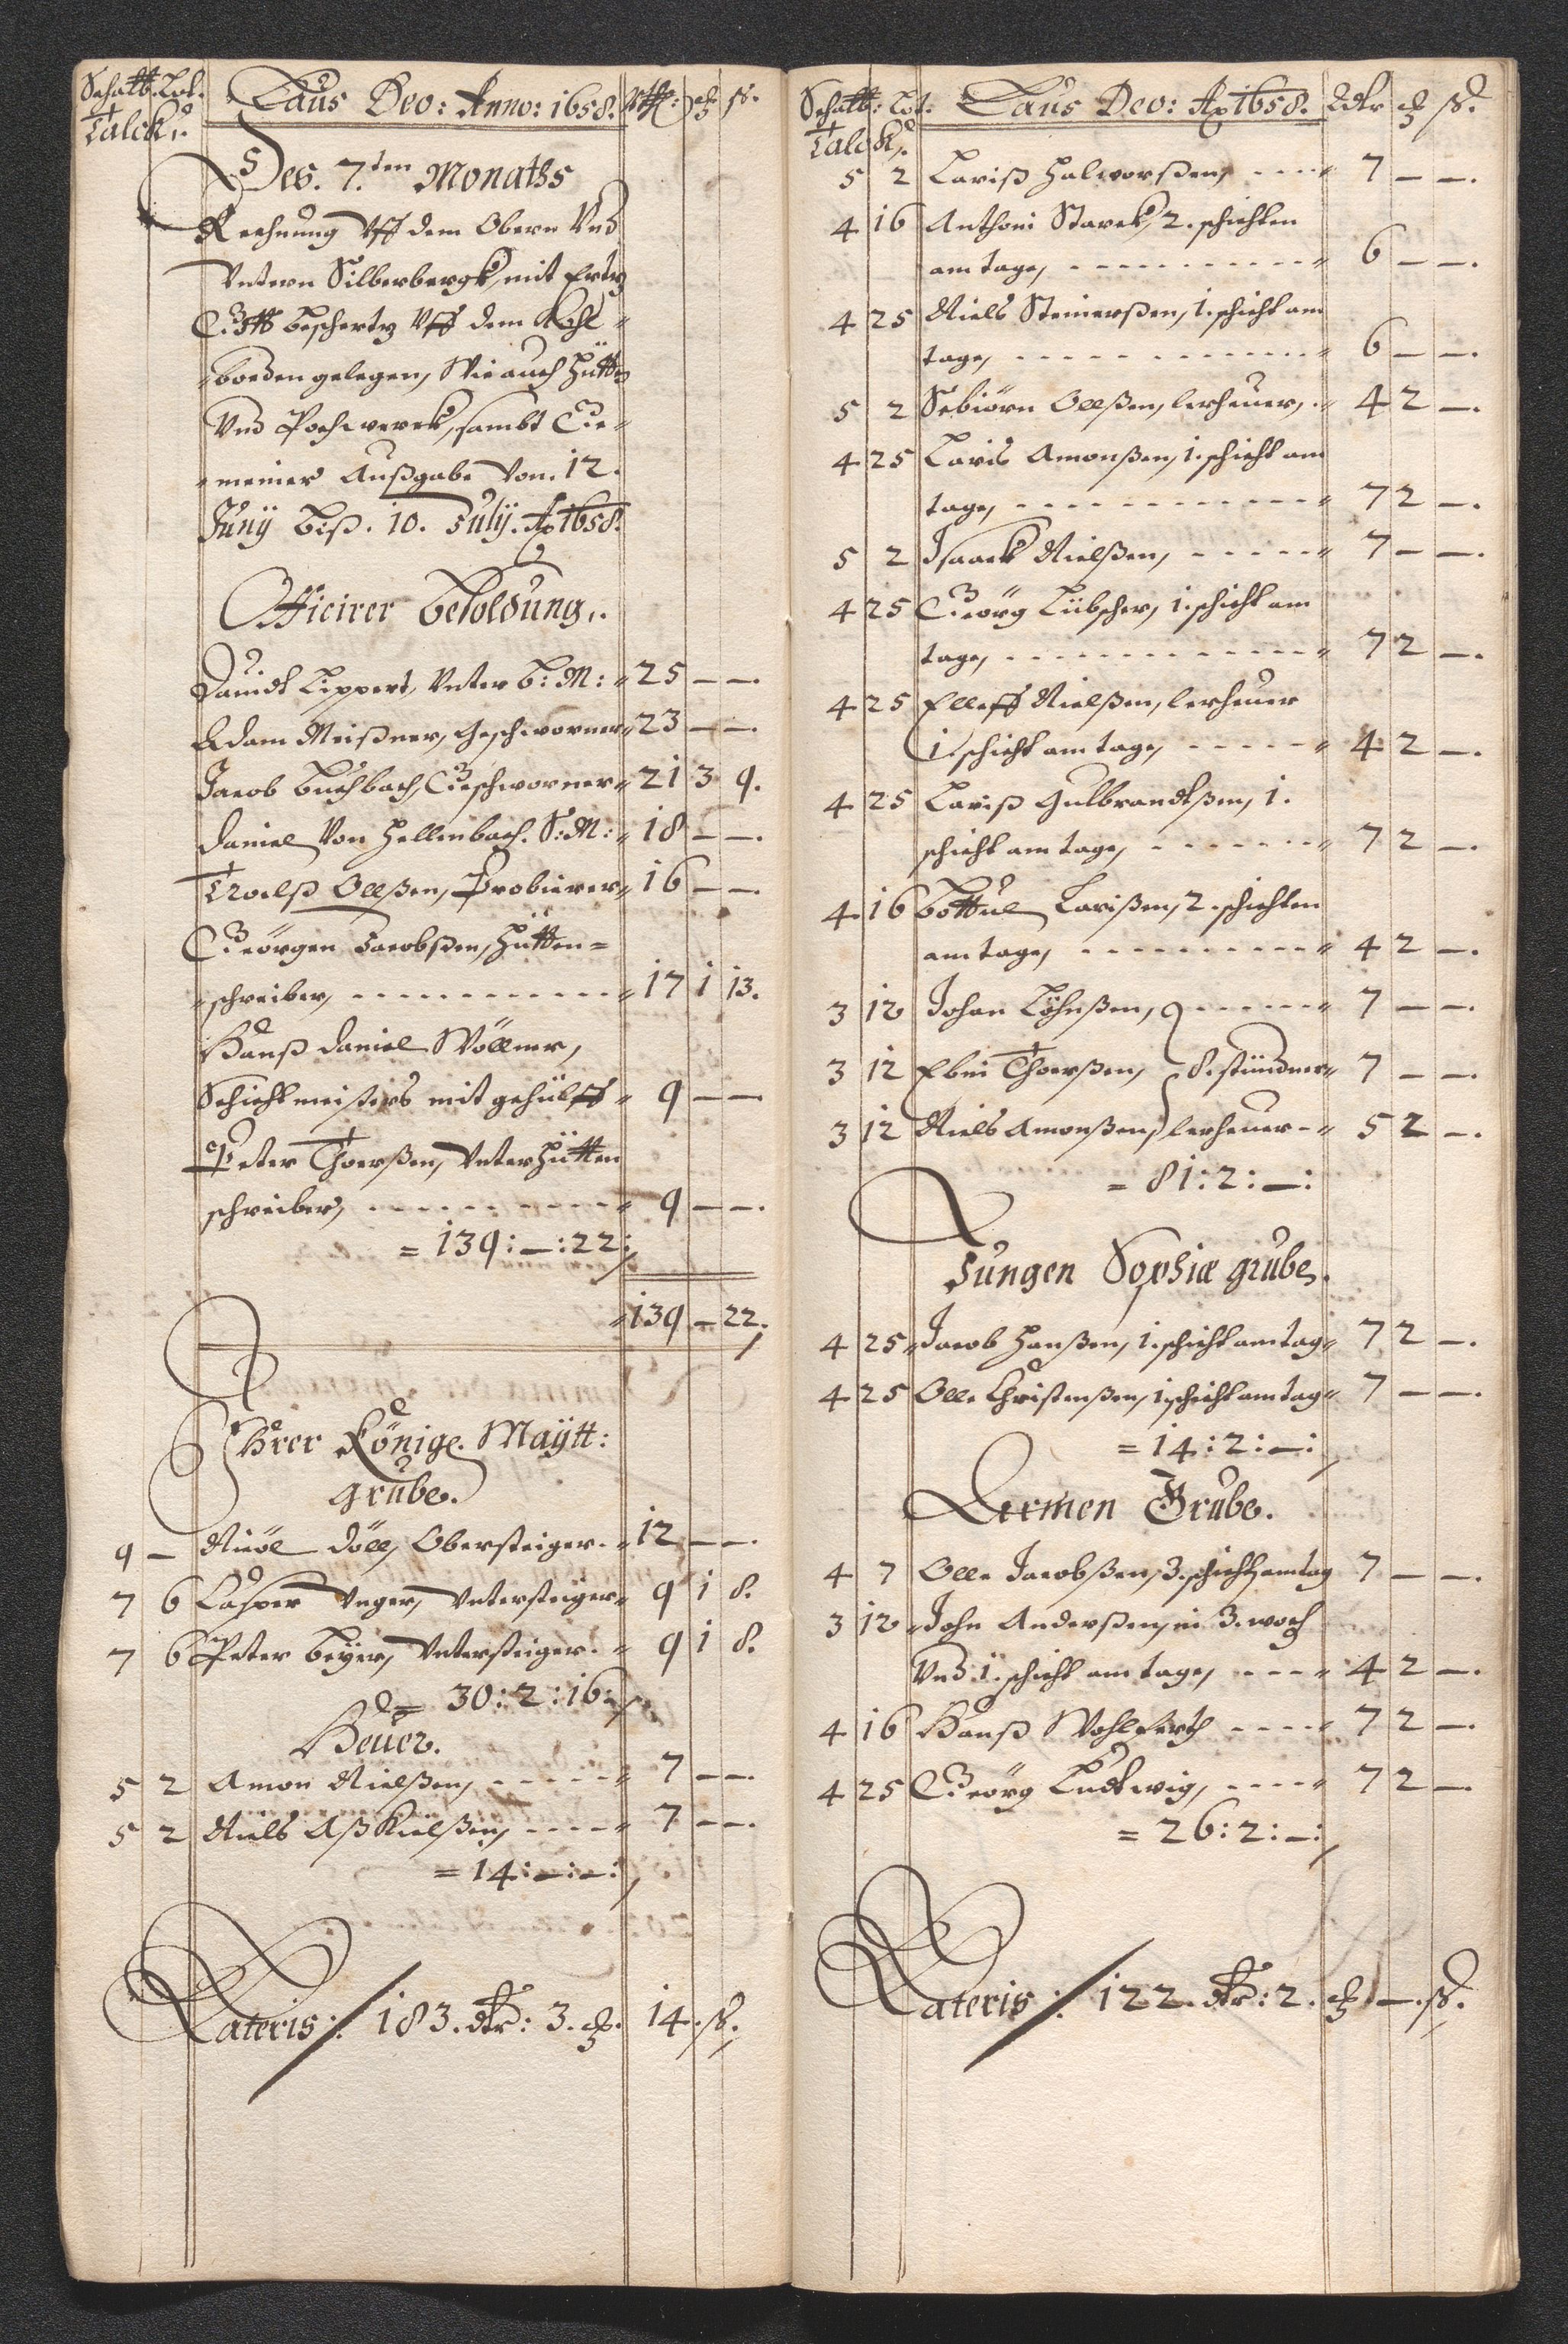 Schalb. Lot. Laus Deo: Anno: 1658. Rthr: ß.
Talck:
Des. 7.ten Monaths
Rechnung Vff dem Obern Vnd
Vntern Silberbergk, mit Ertz
Gott bescherts Vff dem Kohl-
boeden gelegen, Wie auch Hütt
Vnd Pochwerck, sambt Ge-
meiner Außgabe Von. 12.
Juny biß. 10. July. Ao 1658.
Officirer besoldung.
Dauidt Lippert, Vnter b: M: 25 — —.
Adam Meißner, Geschworner 23 — —.
Jacob Buchbach, Geschworner 21 3 9.
Daniel Von Hellenbach. S: M: 18 — —.
Troelß Ollßen, Probierer 16 — —.
Georgen Jacobßen, Hütten=
schreiber, 17 1 13.
Hanß Daniel Wöllner,
Schichtmeisters mit gehülff 9 — —
Peter Thorßen, Vnter Hütten
schreiber, 9 — —.
= 139: —: 22:
139 — 22.
Ihrer Königl. Maÿtt:
grube.
9 — Nicöl Döll, Obersteiger. 12 — —.
7 6 Casper Vnger, Vntersteiger 9 1 8.
7 6 Peter beÿer, Vntersteiger. 9 1 8.
= 30: 2: 16:
Heuer.
5 2 Amon Nielßen, 7 — —.
5 2 Niels Aßkielßen, 7 — —.
= 14: —: —:
Lateris: 183. dlr: 3. 14. ß.
Schalb: Lot: Laus Deo: Ao 1658. Rdlr ß.
Talck:
5 2 Lariß Halworßen, 7 — —.
4 16 Anthoni Starck, 2. schichten
am tage, 6 — —.
4 25 Niels Steinerßen, 1. schicht am
tage, 6 — —.
5 2 Sebiörn Ollßen, lerheuer, 4 2 —.
4 25 Laris Amonßen, 1. schicht am
tage, 7 2 —.
5 2 Isaack Nielßen, 7 — —.
4 25 Georg Lübscher, 1. schicht am
tage, 7 2 —.
4 25 Elleff Nielßen, lerheuer
1. schicht am tage, 4 2 —.
4 25 Lariß Gulbrandtßen, 1.
schicht am tage, 7 2 —.
4 16 Bottul Larißen, 2. schichten
am tage, 4 2 —.
3 12 Johan Löhnßen, 7 — —.
3 12 Ebin Thorßen, 8. stündner 7 — —.
3 12 Niels Amonßen, lerheuer 5 2 —.
= 81: 2: —:
Jungen Sophiæ grube.
4 25 Jacob Hanßen, 1. schicht am tag 7 2 —.
4 25 Olle Christenßen, 1. schicht am tag 7 — —.
= 14: 2: —:
Lermen Grube.
4 7 Olle Jacobßen, 3. schicht am tag 7 — —.
3 12 John Anderßen, in 3. woch
Vnd 1. schicht am tage, 4 2 —.
4 16 Hanß Wohlfarth 7 2 —.
4 25 Georg Ludtwig, 7 2 —.
= 26: 2: —:
Lateris: 122. dlr: 2. —. ß.